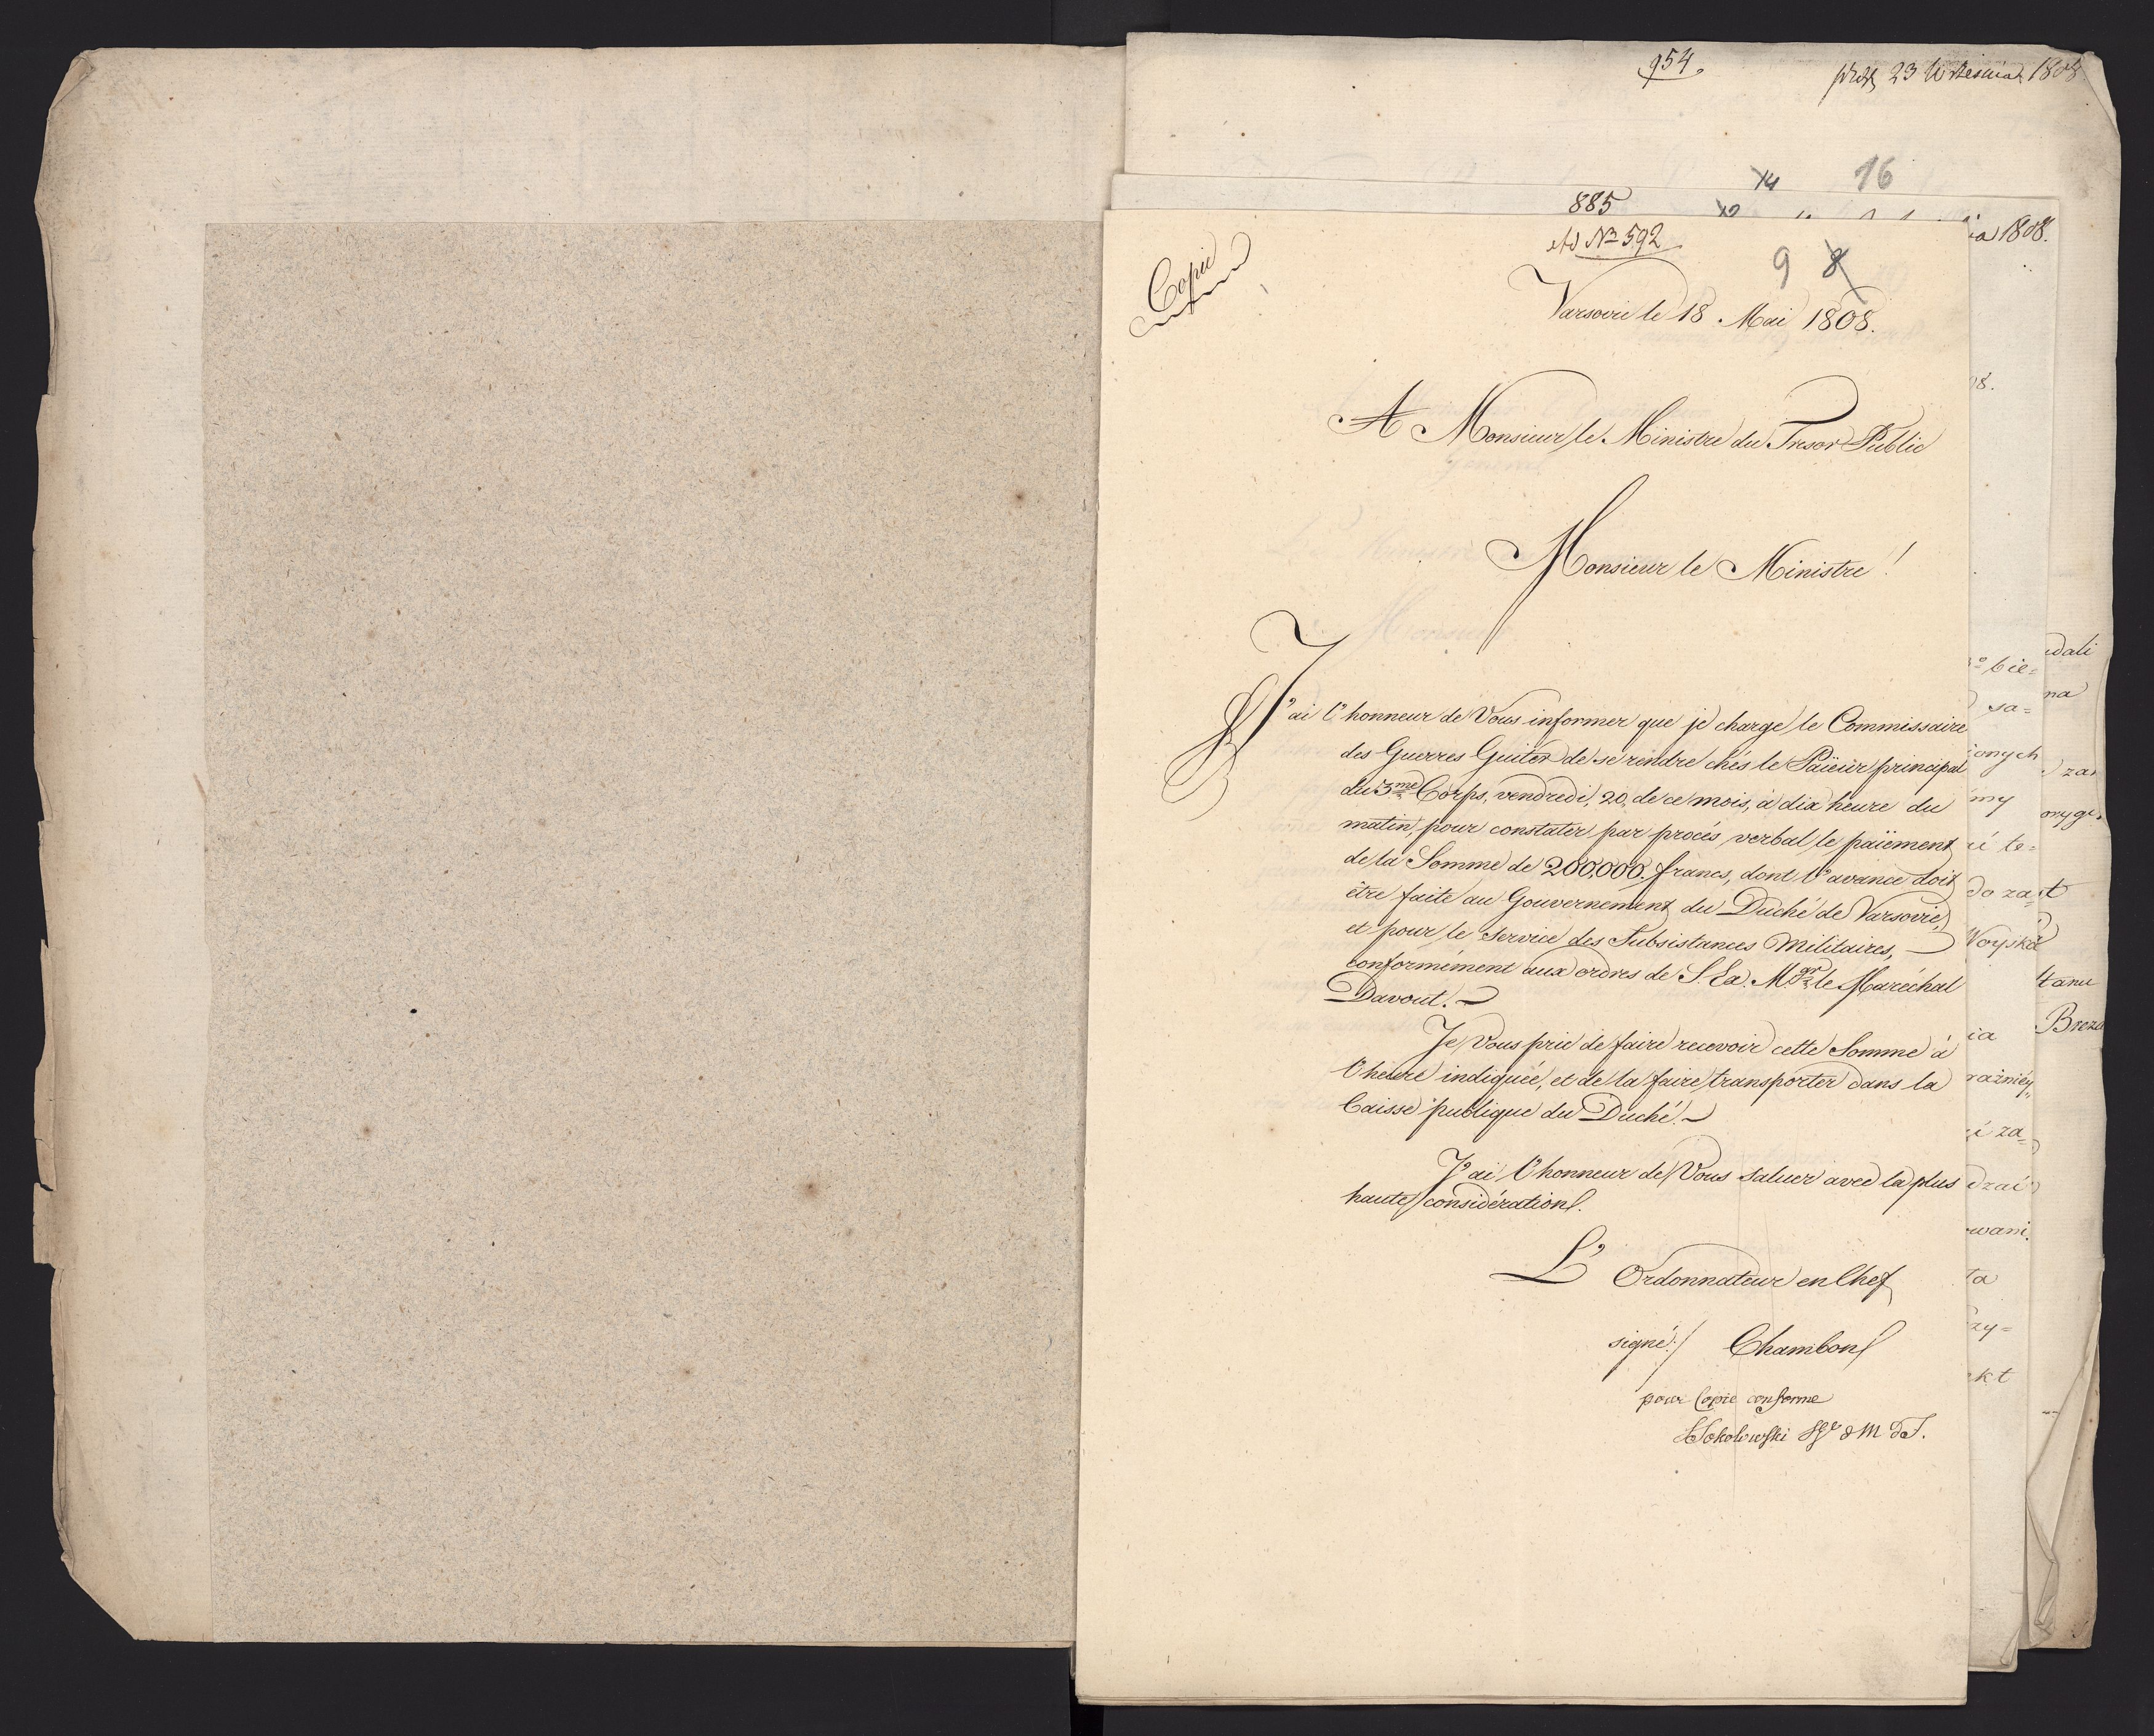 954.
23 Września 1808
14 16
885
12
ia 1808.
ad № 592
9 8
Copie
Varsovie le 18 Mai 1808.
A Monsieur le Ministre du Tresor Public
Monsieur le Ministre!
J'ai l'honneur de Vous informer que je charge le Commissaire
des Guerres Guiter de se rendre chés le Païeur principal
du 3me Corps, vendredi, 20, de ce mois, à dix heure du
matin, pour constater par procés verbal le païement
de la Somme de 200,000. francs, dont l'avance doit
être faite au Gouvernement du Duché de Varsovie,
et pour le service des Subsistances Militaires, —
conformément aux ordres de S. Ex. Mgr le Maréchal
Davout. —
Je Vous prie de faire recevoir cette Somme à
l'heure indiquée, et de la faire transporter dans la
Caisse publique du Duché. —
J'ai l'honneur de Vous saluer avec la plus
haute considération.
L'Ordonnateur en Chef
signé:/ Chambon
pour Copie conforme
Sokolowski
08.
bie=
sa=
onych
my
le=
do za=
Woyska
ia
raźniéy
za=
dzai
wani.
ta
zy=
kt
dali
na
za
onyge
t
tanu
Breza